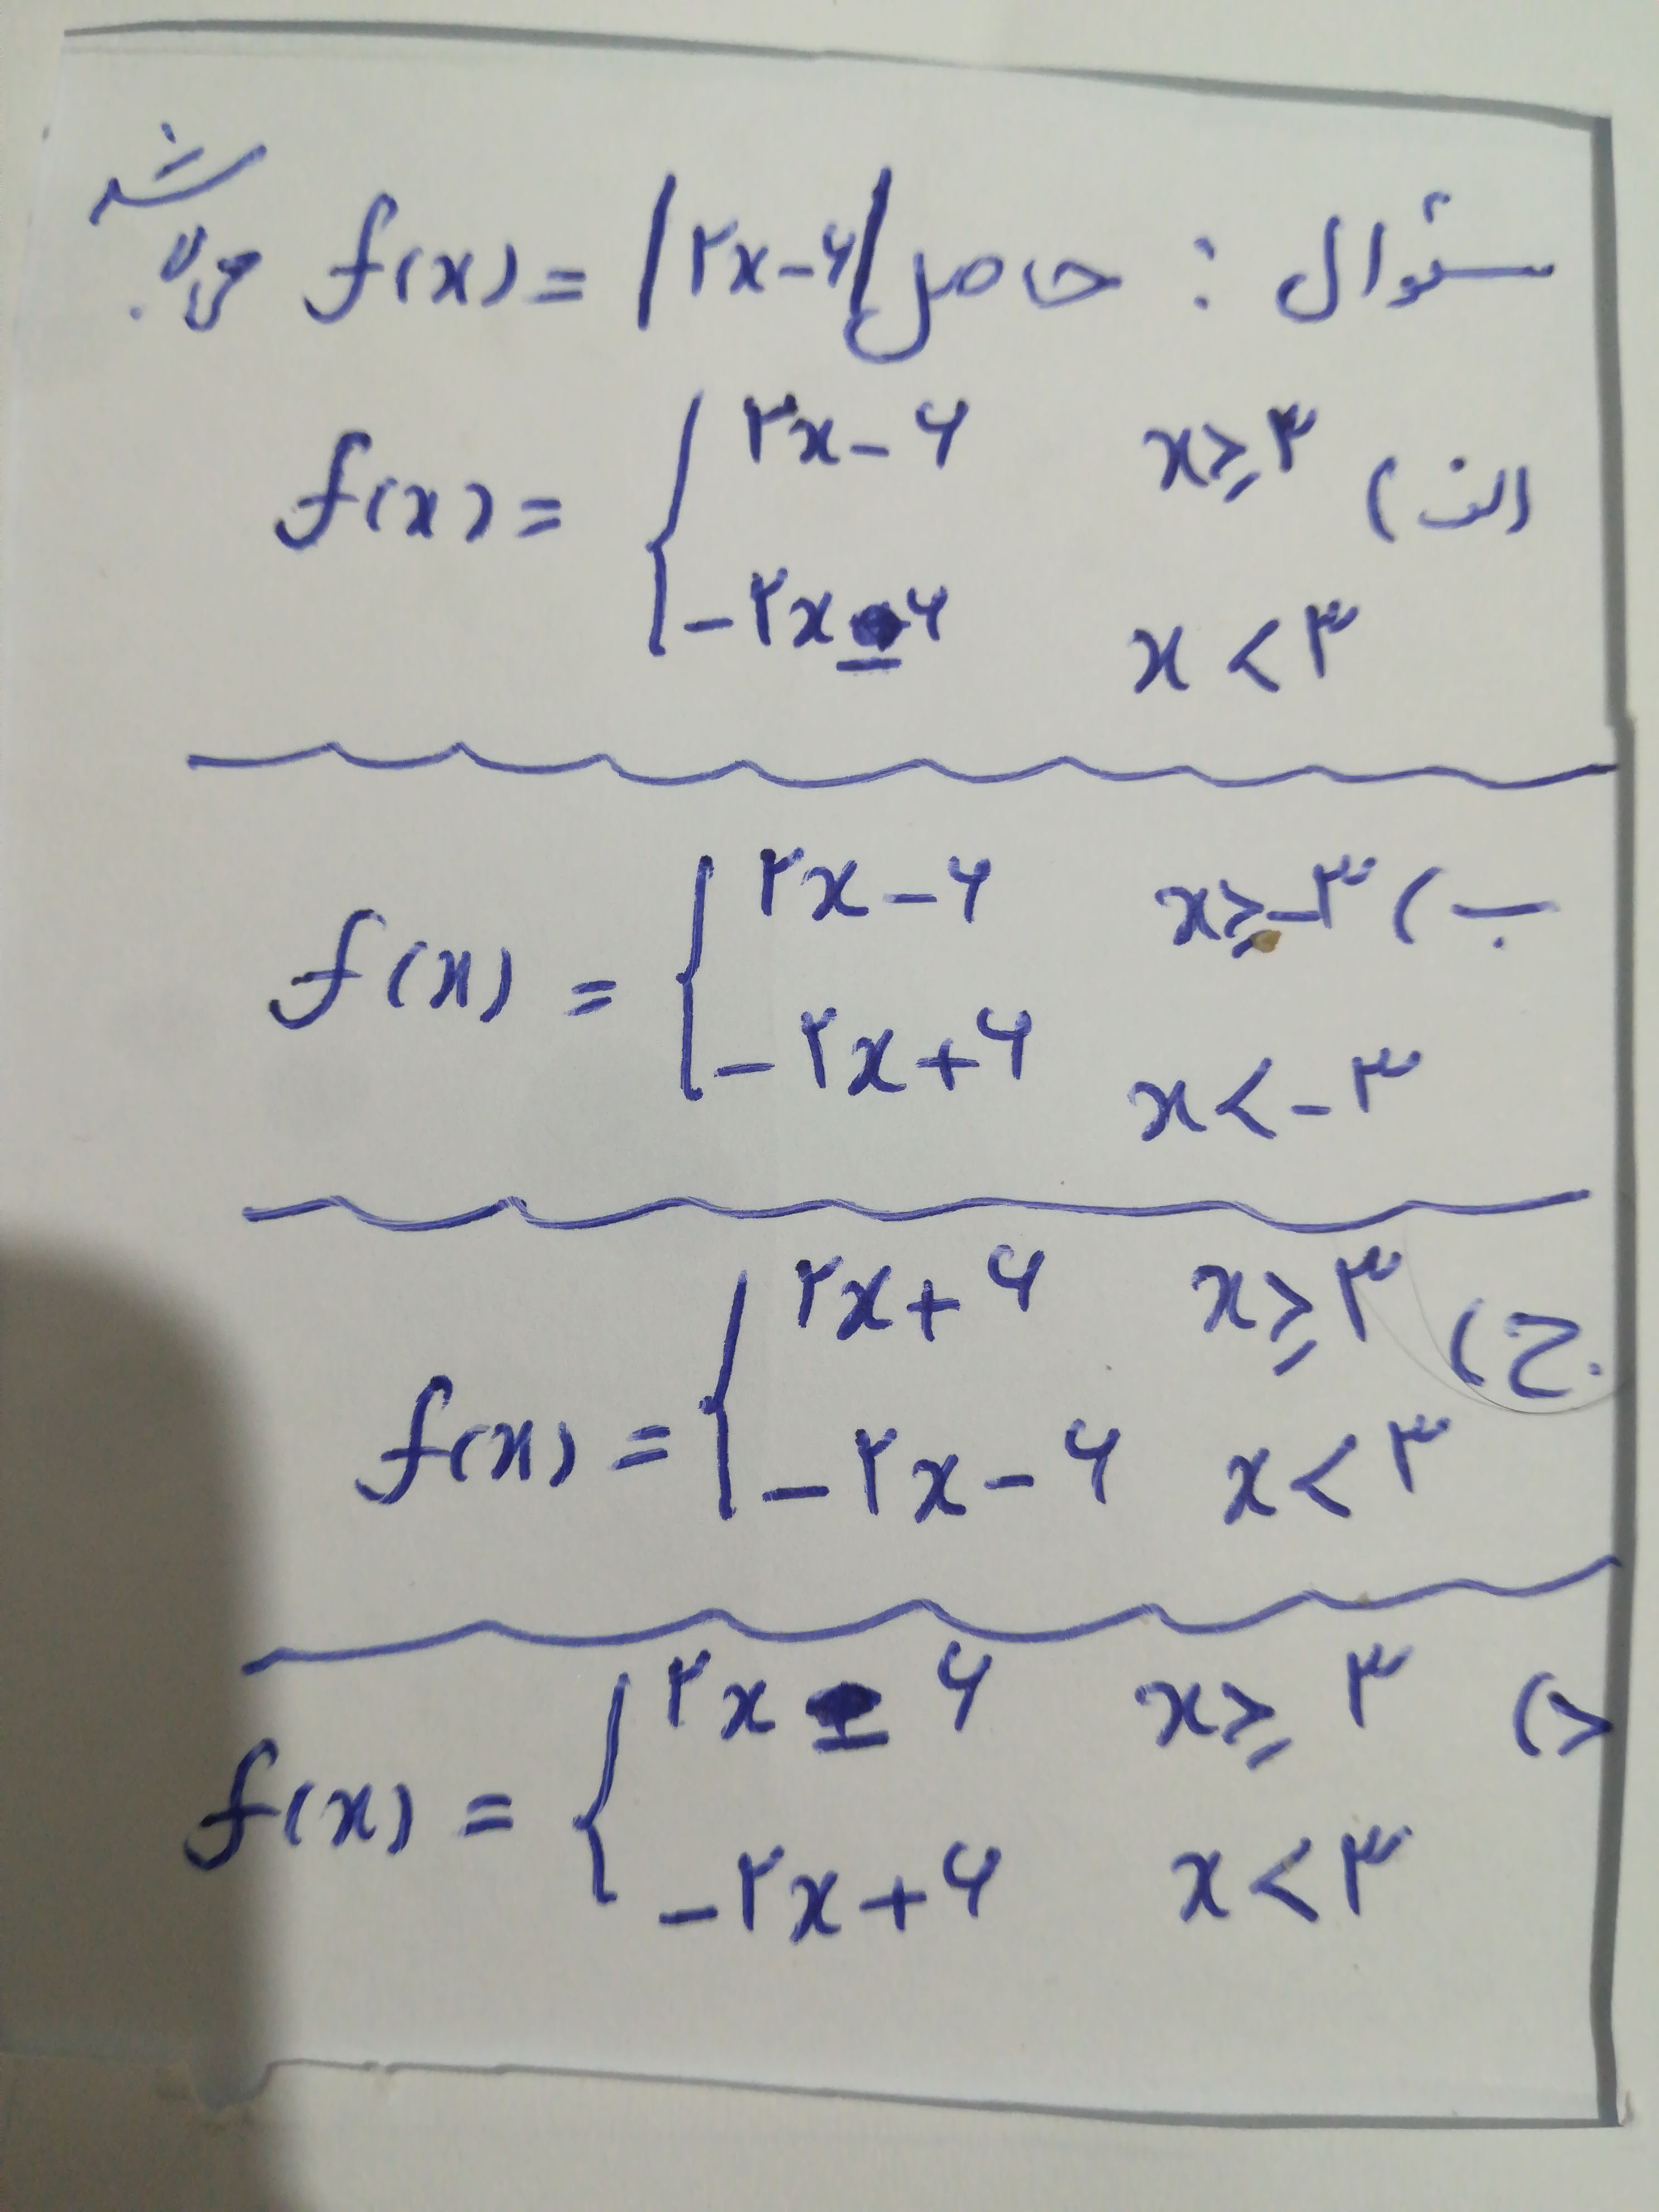 سئوال : حاصل f(x) = |۲x-۶| می‌باشد
الف) f(x) = { ۲x-۶ x≥۳
-۲x-۶ x<۳
ب) f(x) = { ۲x-۶ x≥-۳
-۲x+۶ x<-۳
ج) f(x) = { ۲x+۶ x≥۳
-۲x-۶ x<۳
د) f(x) = { ۲x-۶ x≥۳
-۲x+۶ x<۳